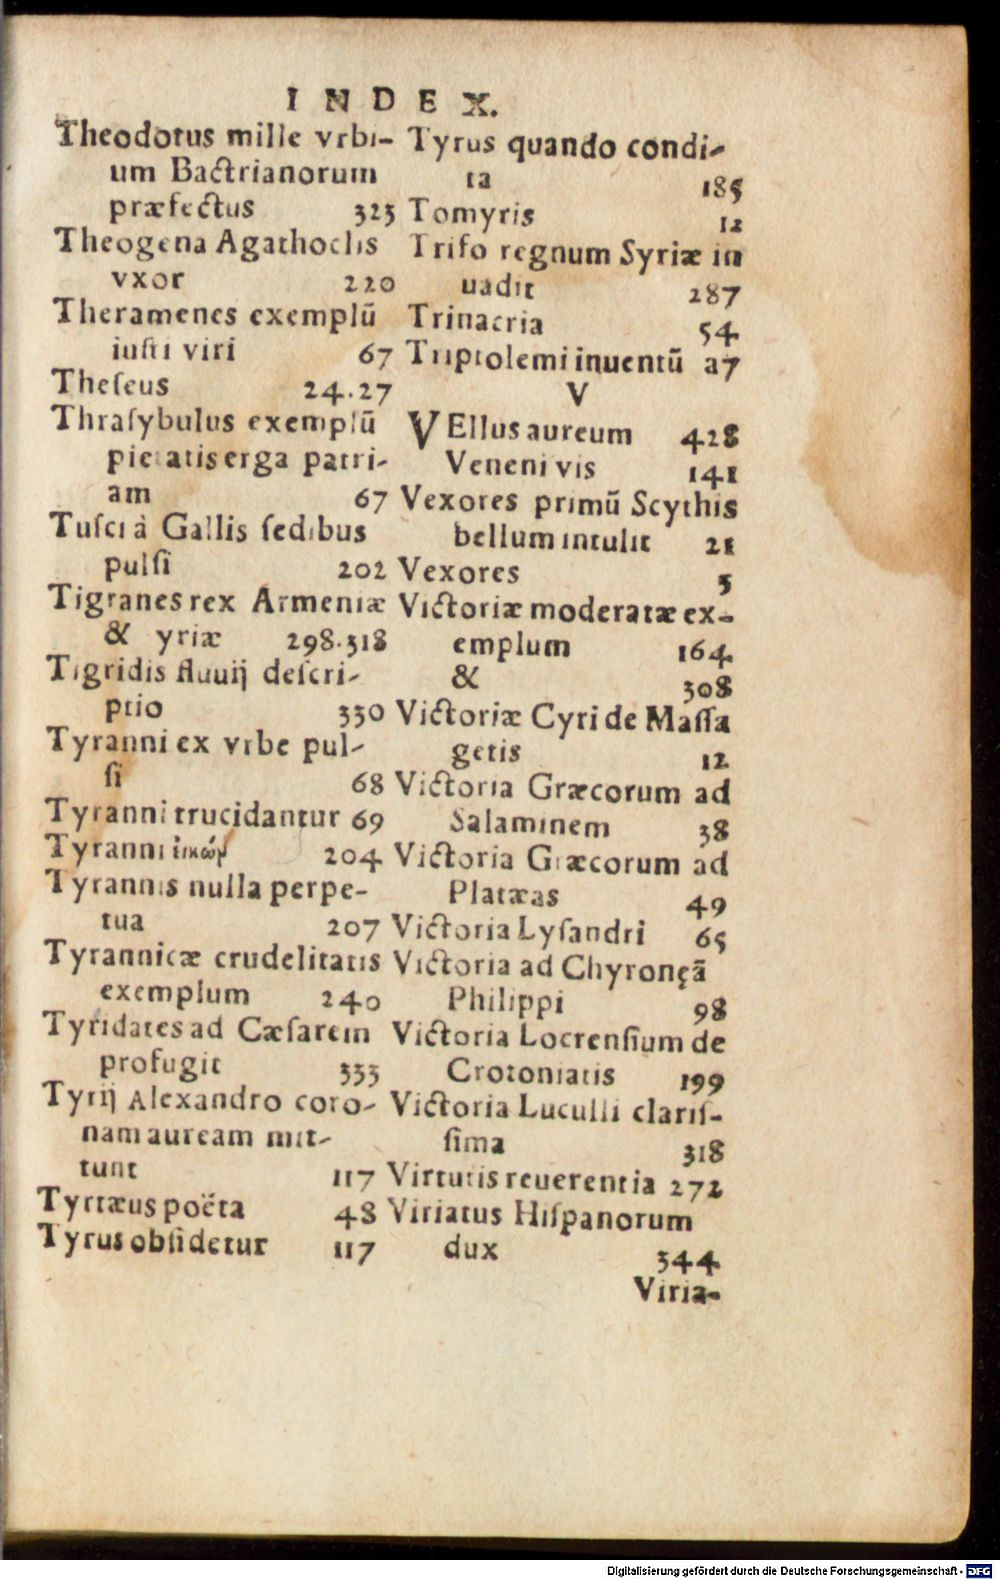 INDEX.
Theodotus mille vrbi-
um Bactrianorum
præfectus 323
Theogena Agathoclis
vxor 220
Theramenes exemplũ
iusti viri 67
Theſeus 24.27
Thraſybulus exemplũ
pietatis erga patri-
am 67
Tuſci à Gallis ſedibus
pulſi 202
Tigranes rex Armeniæ
& yriæ 298.318
Tigridis fluuij deſcri-
ptio 330
Tyranni ex vrbe pul-
ſi 68
Tyranni trucidantur 69
Tyranni 204
Tyrannis nulla perpe-
tua 207
Tyrannicæ crudelitatis
exemplum 240
Tyridates ad Cæſarem
profugit 333
Tyrij Alexandro coro-
nam auream mit-
tunt 117
Tyrtæus poëta 48
Tyrus obſidetur 117
Tyrus quando condi-
ta 185
Tomyris 12
Trifo regnum Syriæ in
uadit 287
Trinacria 54
Triptolemi inuentũ 27
V
VEllus aureum 428
Veneni vis 141
Vexores primũ Scythis
bellum intulit 21
Vexores 5
Victoriæ moderatæ ex-
emplum 164
& 308
Victoriæ Cyri de Maſſa
getis 12
Victoria Græcorum ad
Salaminem 38
Victoria Græcorum ad
Platæas 49
Victoria Lyſandri 65
Victoria ad Chyronęã
Philippi 98
Victoria Locrenſium de
Crotoniatis 199
Victoria Luculli clariſ-
ſima 318
Virtutis reuerentia 272
Viriatus Hiſpanorum
dux 344
Viria-
Digitalisierung gefördert durch die Deutsche Forschungsgemeinschaft - DFG